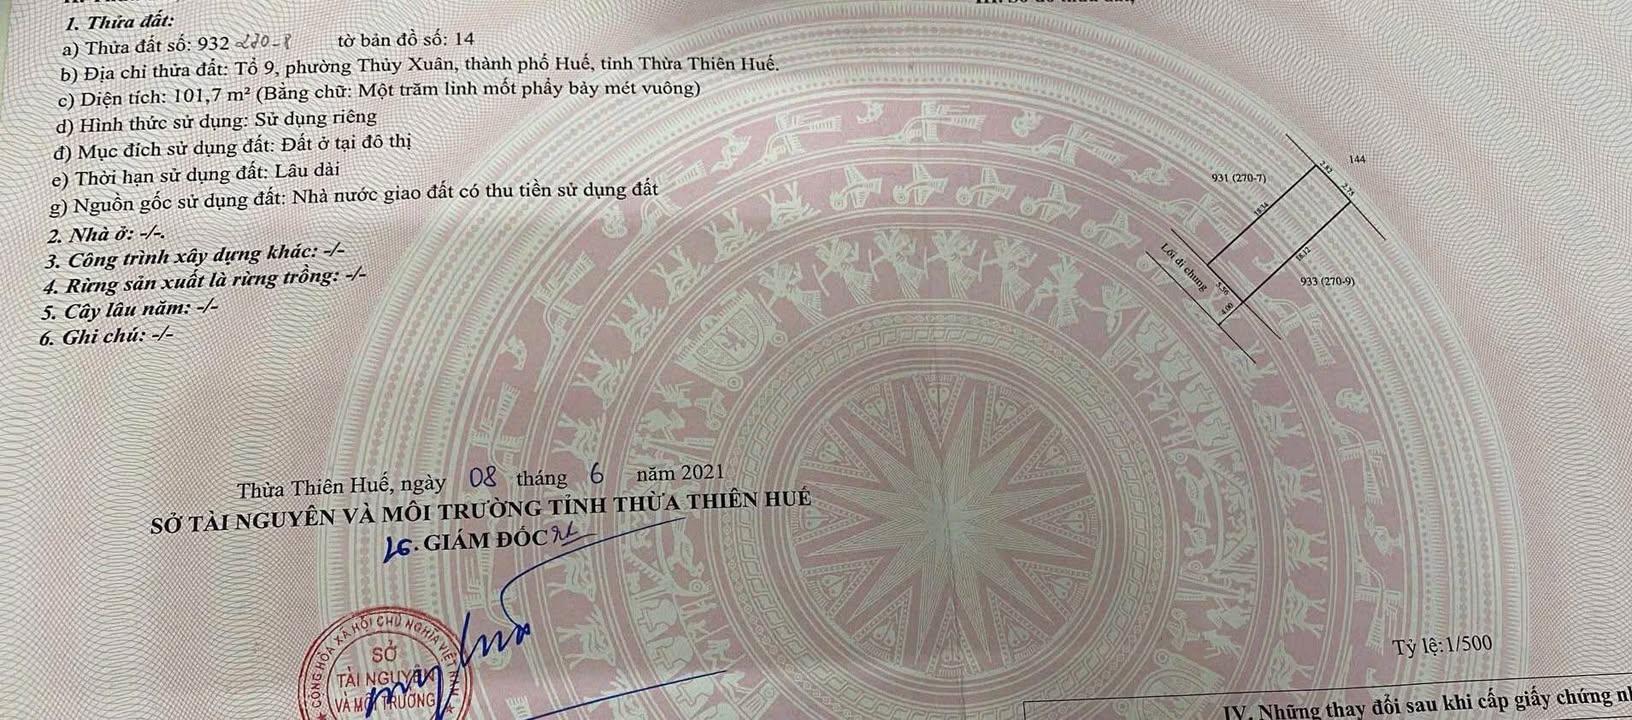 1. Thửa đất:
a) Thửa đất số: 932 270-8 tờ bản đồ số: 14
b) Địa chỉ thửa đất: Tổ 9, phường Thủy Xuân, thành phố Huế, tỉnh Thừa Thiên Huế.
c) Diện tích: 101,7 m² (Bằng chữ: Một trăm linh mốt phẩy bảy mét vuông)
d) Hình thức sử dụng: Sử dụng riêng
đ) Mục đích sử dụng đất: Đất ở tại đô thị
e) Thời hạn sử dụng đất: Lâu dài
g) Nguồn gốc sử dụng đất: Nhà nước giao đất có thu tiền sử dụng đất
2. Nhà ở: -/-.
3. Công trình xây dựng khác: -/-
4. Rừng sản xuất là rừng trồng: -/-
5. Cây lâu năm: -/-
6. Ghi chú: -/-
144
931 (270-7)
2.82
2.75
18.14
18.12
Lối đi chung
5.56
4.00
933 (270-9)
Thừa Thiên Huế, ngày 08 tháng 6 năm 2021
SỞ TÀI NGUYÊN VÀ MÔI TRƯỜNG TỈNH THỪA THIÊN HUẾ
GIÁM ĐỐC
CỘNG HÒA XÃ HỘI CHỦ NGHĨA VIỆT NAM
SỞ
TÀI NGUYÊN
VÀ MÔI TRƯỜNG
Tỷ lệ:1/500
IV. Những thay đổi sau khi cấp giấy chứng